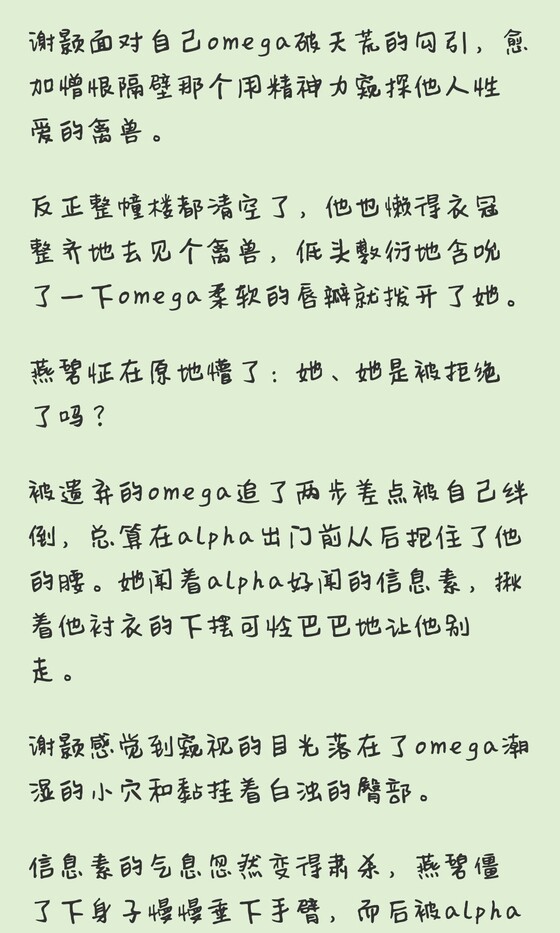 谢颢面对自己omega破天荒的勾引，愈
加憎恨隔壁那个用精神力窥探他人性
爱的禽兽。
反正整幢楼都清空了，他也懒得衣冠
整齐地去见个禽兽，低头敷衍地含吮
了一下omega柔软的唇瓣就拨开了她。
燕碧怔在原地懵了：她、她是被拒绝
了吗？
被遗弃的omega追了两步差点被自己绊
倒，总算在alpha出门前从后抱住了他
的腰。她闻着alpha好闻的信息素，揪
着他衬衣的下摆可怜巴巴地让他别
走。
谢颢感觉到窥视的目光落在了omega潮
湿的小穴和黏挂着白浊的臀部。
信息素的气息忽然变得肃杀，燕碧僵
了下身子慢慢垂下手臂，而后被alpha